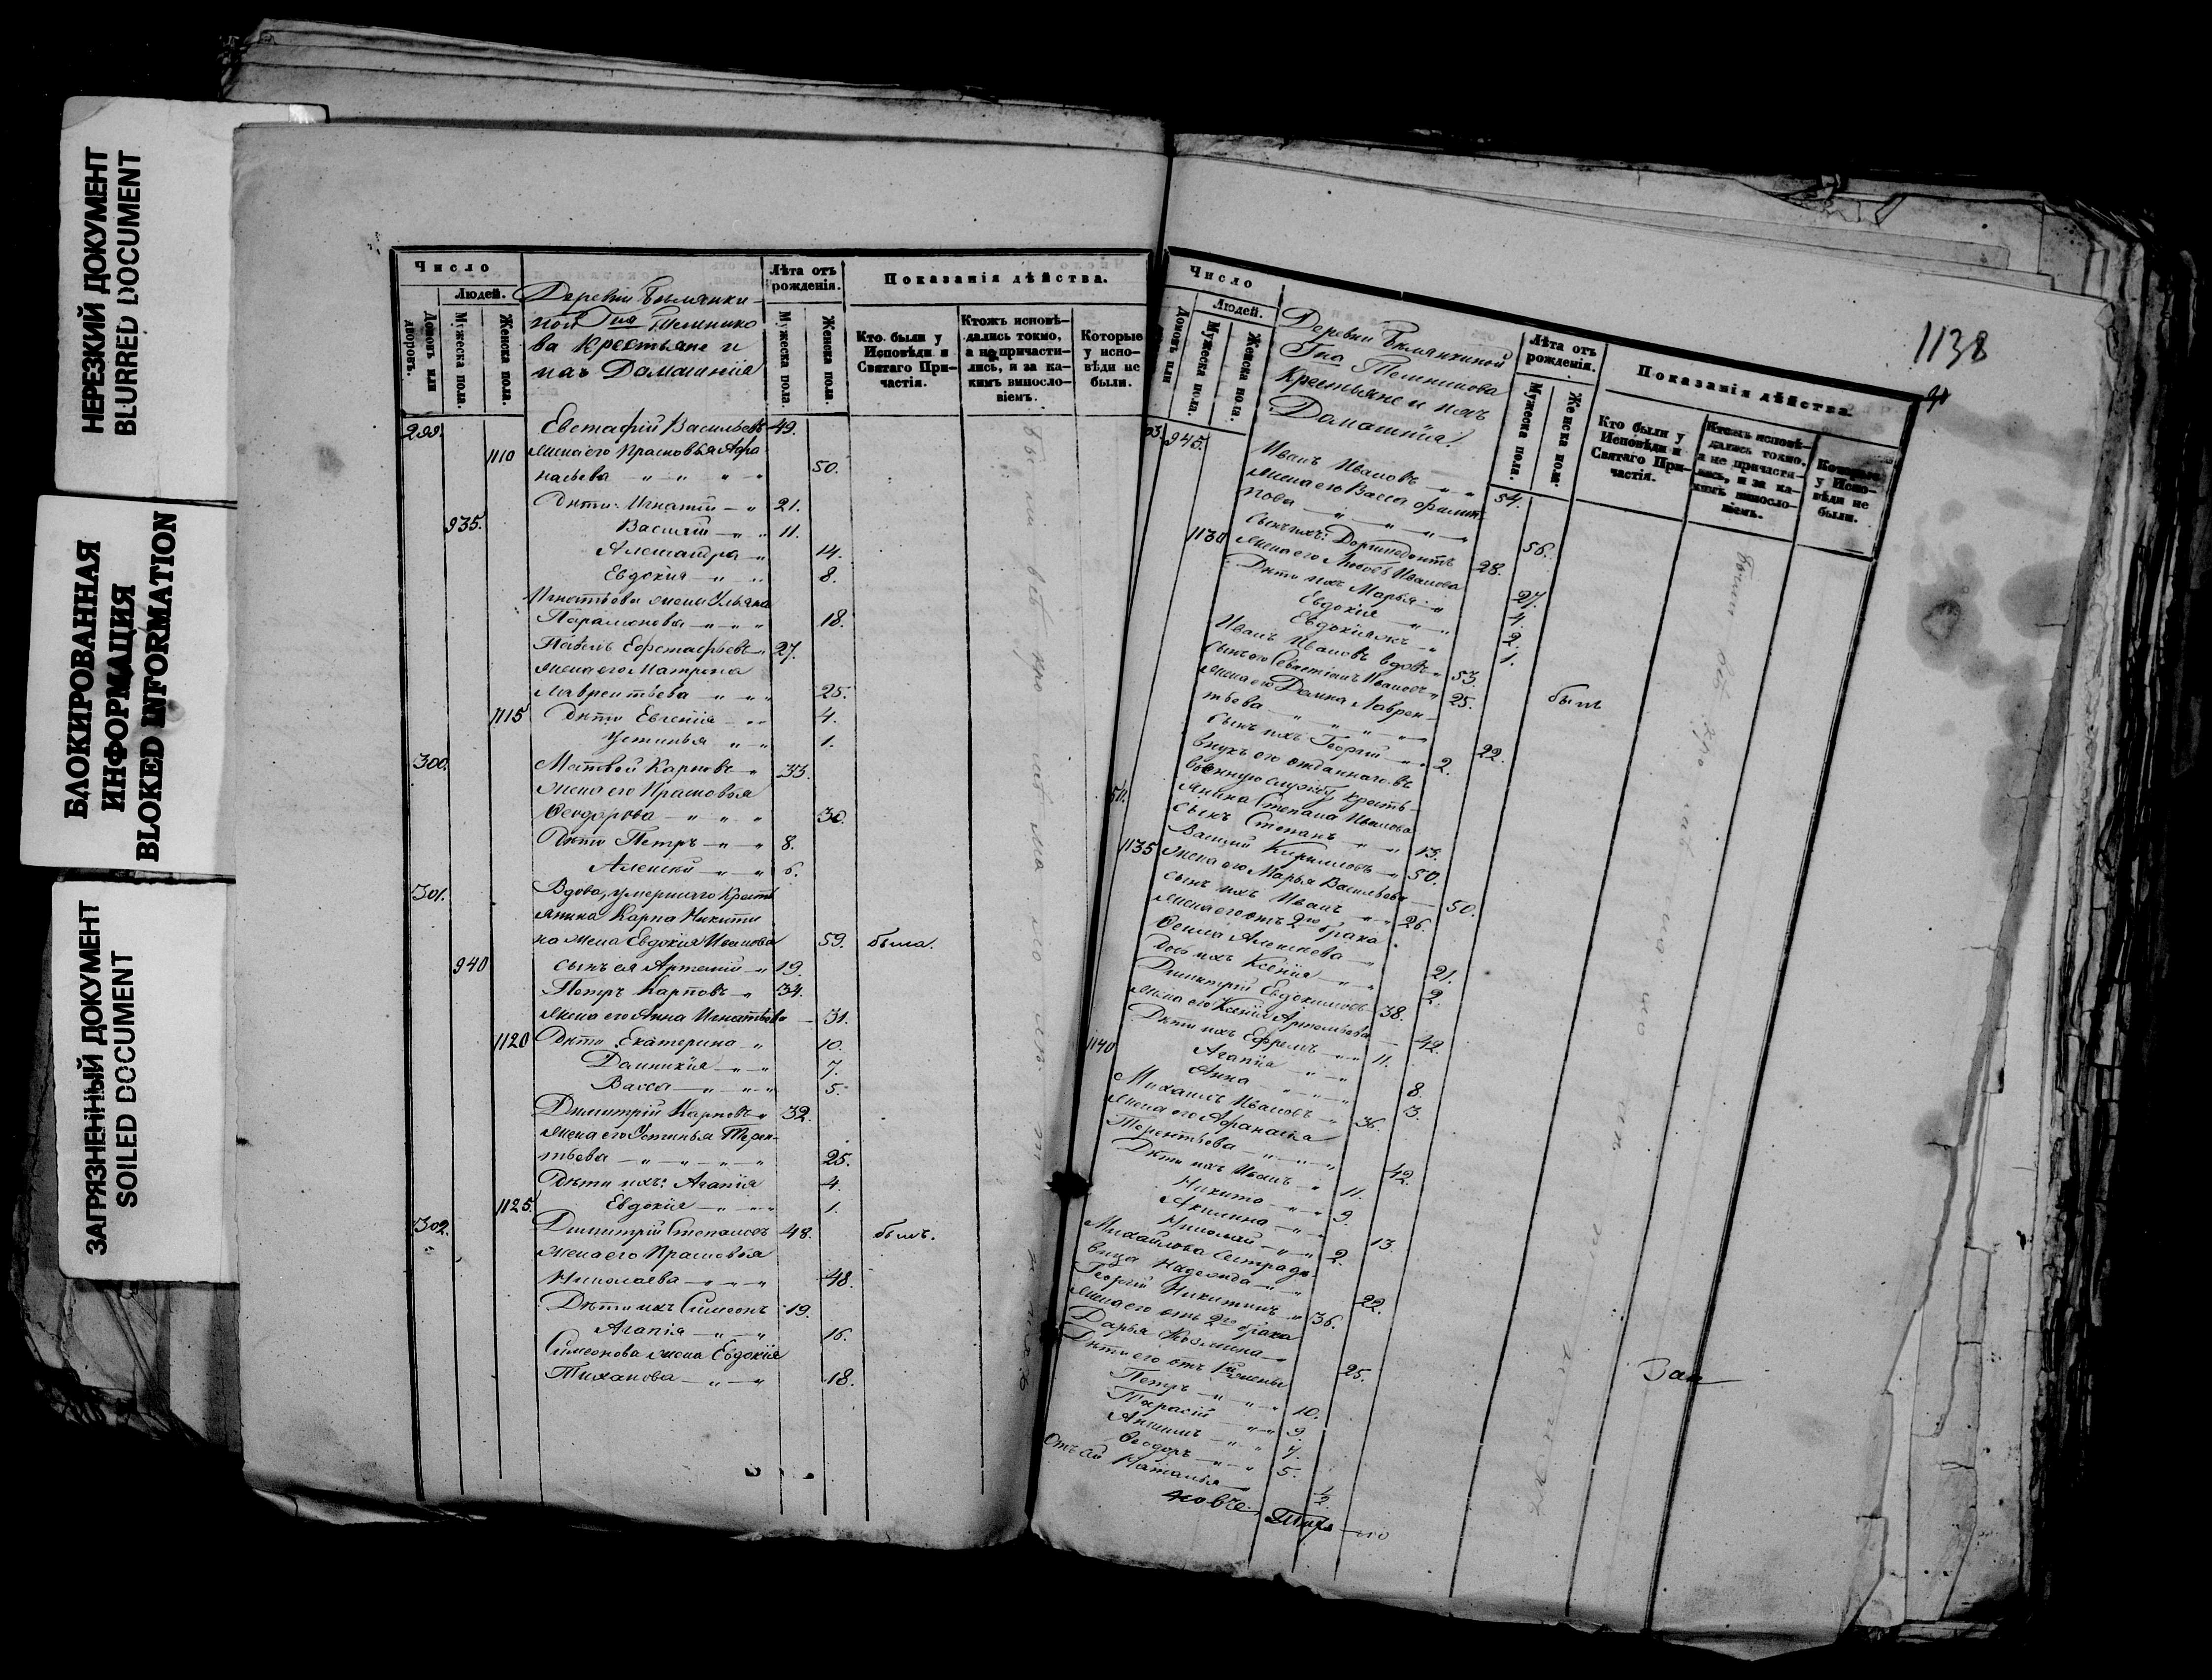 НЕРЕЗКИЙ ДОКУМЕНТ
BLURRED DOCUMENT
БЛОКИРОВАННАЯ
ИНФОРМАЦИЯ
BLOKED INFORMATION
ЗАГРЯЗНЕННЫЙ ДОКУМЕНТ
SOILED DOCUMENT
Число
Людей.
Домовъ или дворовъ.
Мужеска пола.
Женска пола.
Деревни Бѣлянки-
ной Гна Телепнико
ва Крестьяне и
ихъ Домашнія
Лѣта отъ рожденія.
Мужеска пола.
Женска пола.
Показанія дѣйства.
Кто были у Исповѣди и Святаго Причастія.
Ктожъ исповѣдались токмо, а не причастились, и за какимъ винословіемъ.
Которые у исповѣди не были.
299. Евстафій Васильевъ 49.
1110 жена его Прасковья Афа
насьева 50.
Дѣти: Игнатій 21.
935. Василій 11.
Александра 14.
Евдокія 8.
Игнатьева жена Ульяна
Парамонова 18.
Павелъ Ефстафьевъ 27.
жена его Матрена
Лаврентьева 25.
1115 Дѣти Евгенія 4.
Устинья 1.
300. Матвей Карповъ 33.
жена его Прасковья
Ѳеодорова 30.
Дѣти Петръ 8.
Алексей 6.
301. Вдова, умершаго Кресть
янина Карпа Никити
на жена Евдокия Иванова 59. была.
940 сынъ ея Артемій 19.
Петръ Карповъ 34.
жена его Анна Игнатьева 31.
1120 Дѣти Екатерина 10.
Домникія 7.
Васса 5.
Димитрій Карповъ 32.
жена его Устинья Терен-
тьева 25.
Дѣти ихъ: Агапія 4.
1125. Евдокія 1.
302. Димитрій Степановъ 48. былъ.
жена его Прасковья
Николаева 48.
Дѣти ихъ Симеонъ 19.
Агапія 16.
Симеонова жена Евдокія
Тиханова 18.
1138
Число
Людей.
Домовъ или
Мужеска пола.
Женска пола.
Деревни Бѣлянкиной
Гна Телепникова
Крестьяне и ихъ
Домашнія
Лѣта отъ рожденія.
Мужеска пола.
Женска пола.
Показанія дѣйства.
Кто были у Исповѣди и Святаго Причастія.
Ктожъ исповѣдались токмо, а не причастились, и за какимъ винословіемъ.
Которые у Исповѣди не были.
03. 945. Иванъ Ивановъ 54.
жена его Васса
пова 56.
сынъ ихъ: Доримедонтъ 28.
1130 жена его Любовь Иванова 27.
Дѣти ихъ Марья 4.
Евдокія 2.
Евдокія 1.
Иванъ Ивановъ вдовъ 53. былъ
сынъ его Ивановъ 25.
жена его Домна Лаврен-
тьева 22.
сынъ ихъ Георгій 2.
внукъ его отданнаго въ
военную службу кресть-
50. янина Степана Иванова
сынъ Степанъ 13.
Василій Кирилловъ 50.
1135 жена его Марья Васильева 50.
сынъ ихъ Иванъ 26.
жена его отъ 2го брака
Алексеева 21.
дочь ихъ Ксенія 2.
Димитрій Евдокимовъ 38.
жена его Ксенія Артемьева 42.
Дѣти ихъ Ефремъ 11.
1140 Агапія 8.
Анна 3.
Михаилъ Ивановъ 36.
жена его Афанасія
Терентьева 42.
Дѣти ихъ Иванъ 11.
Никита 9.
Акилина 13.
Николай 2.
Михайлова сестра дѣ-
вица Надежда 22.
Георгій Никитинъ 36.
жена его отъ 2го брака
Дарья Козмина 25.
Дѣти его отъ 1й жены
Петръ 10.
Тарасій 9.
7.
Ѳеодоръ 5.
Отъ 2й Наталья 1/2.